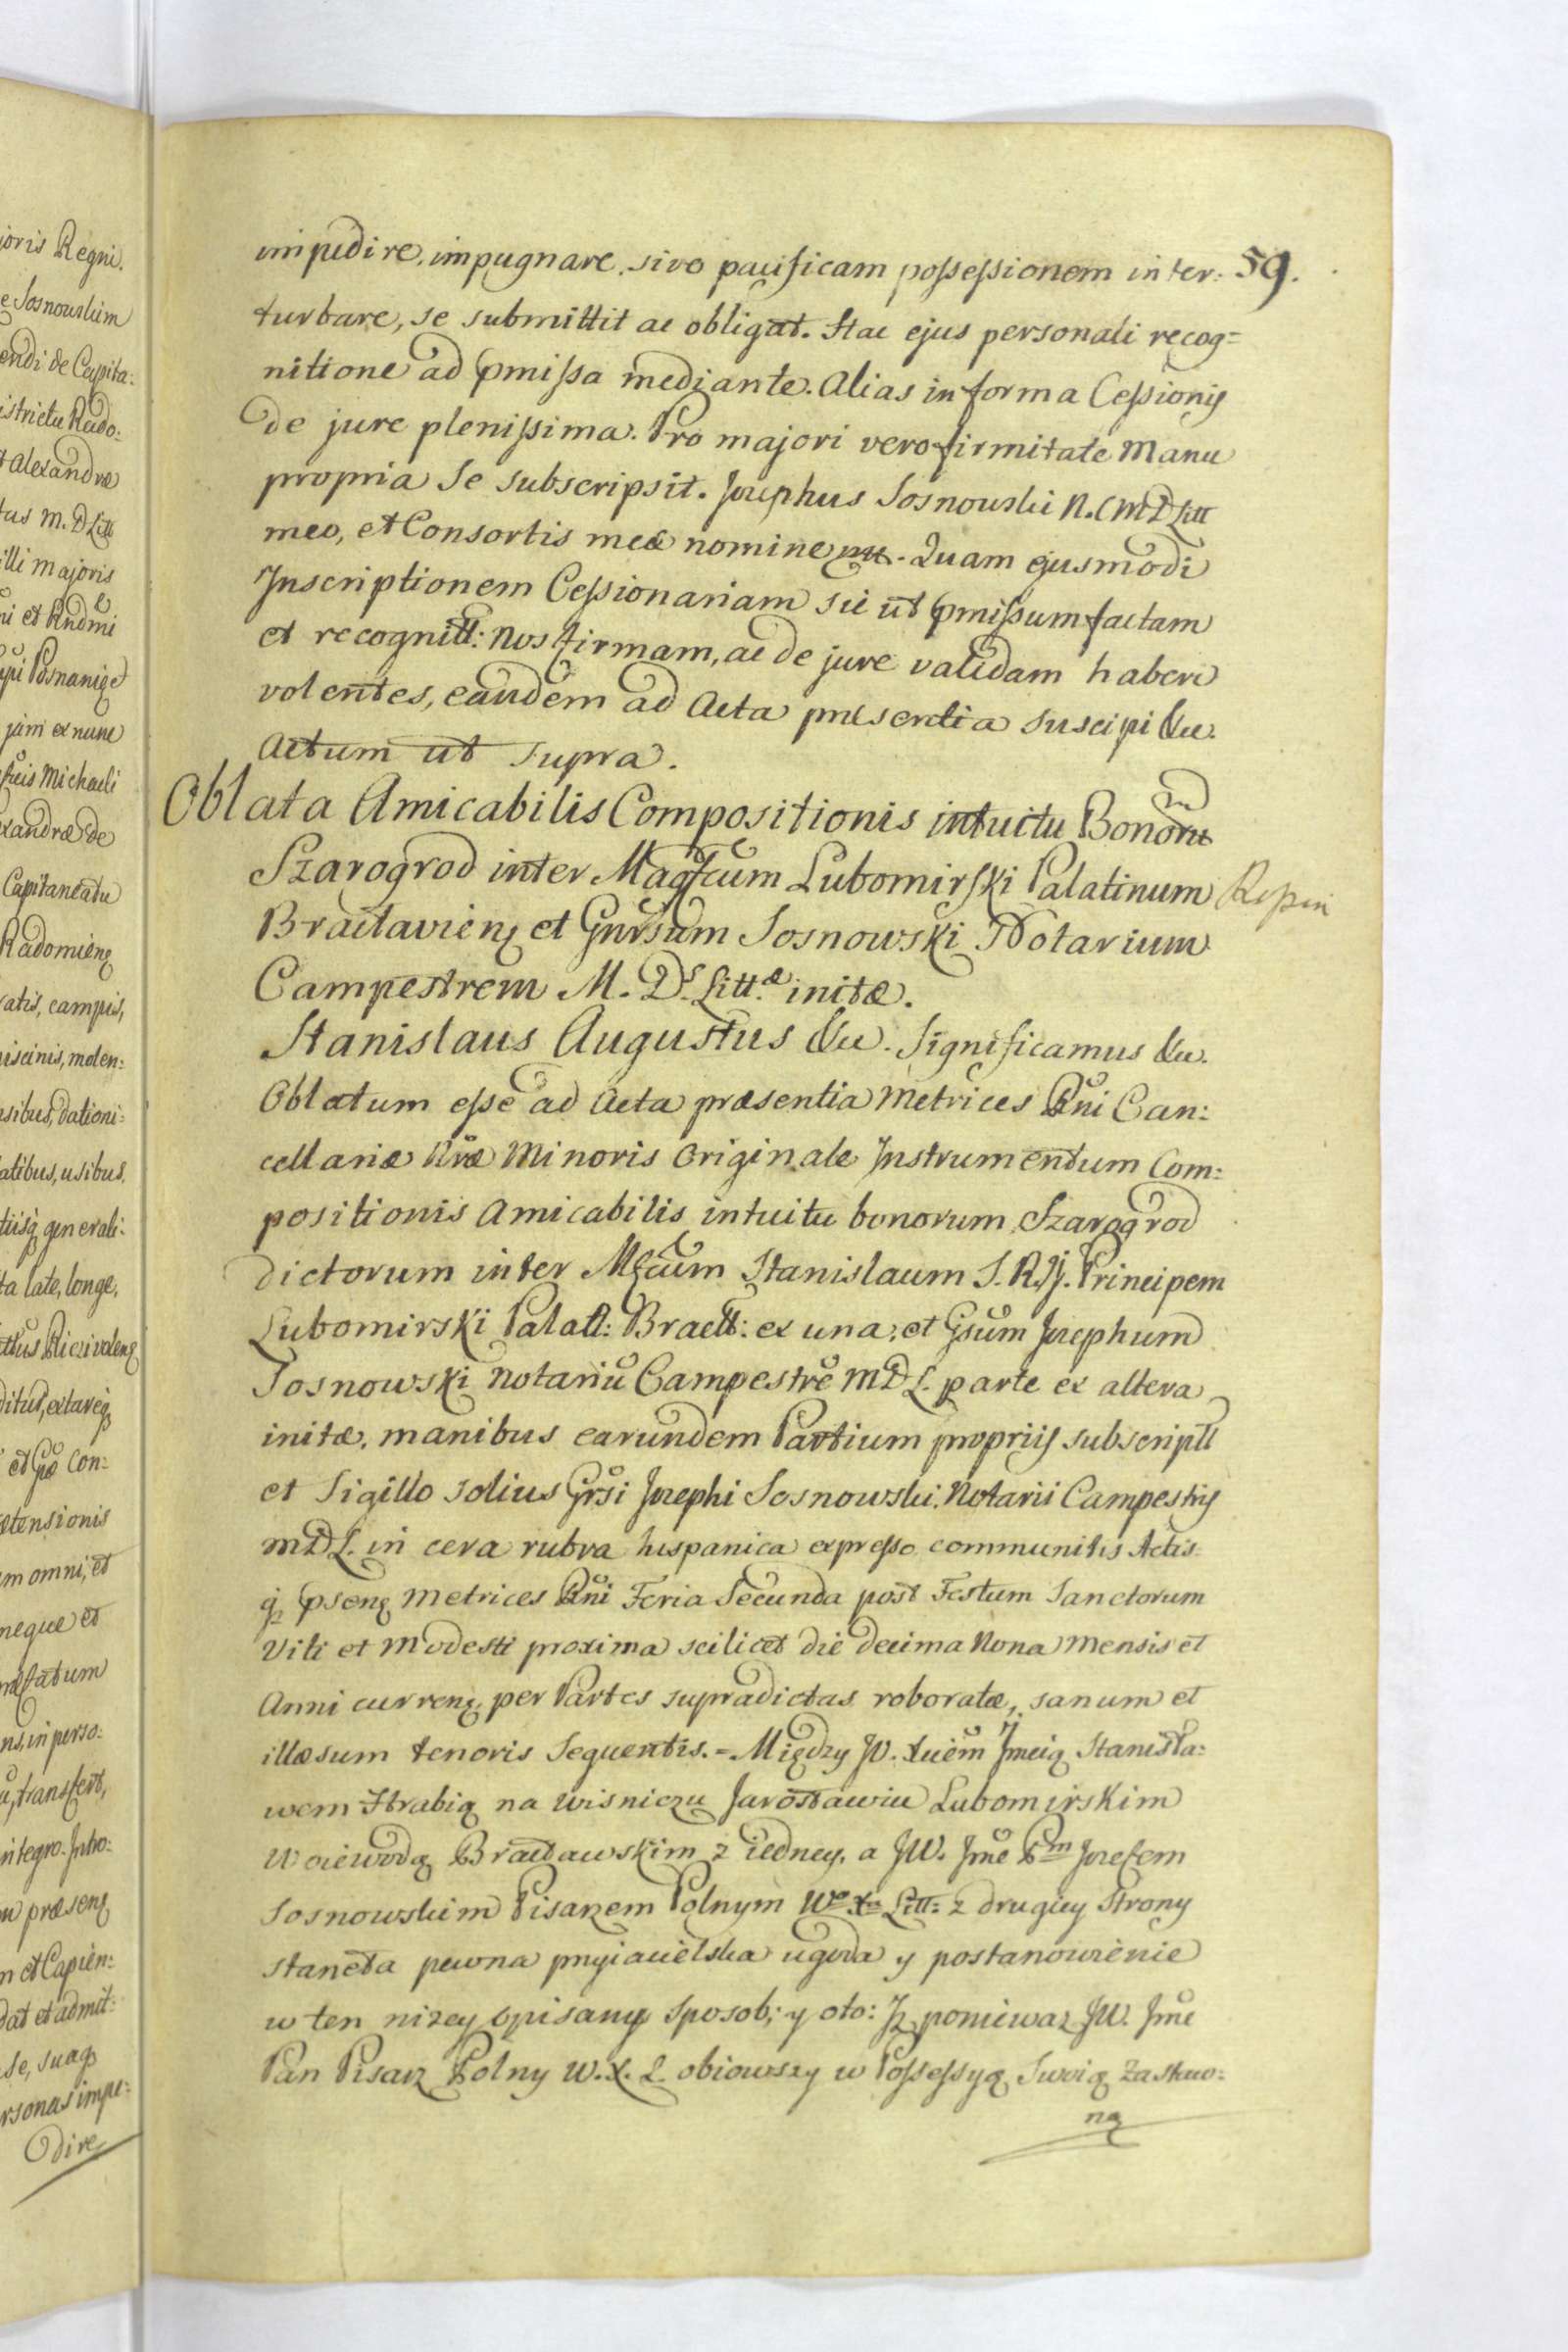 impedire, impugnare, sive pacificam possessionem inter: 59.
turbare, se submittit ac obligat. Hac ejus personali recog=
nitione ad pmissa mediante. Alias in forma Cessionis
de jure plenissima. Pro majori vero firmitate Manu
propria Se subscripsit. Josephus Sosnowski N. C M D Litt
meo, et Consortis meæ nomine mp. Quam ejusmodi
Inscriptionem Cessionariam sic ut pmissum factam
et recognitt: Nos firmam, ac de jure validam haberi
volentes, eandem ad Acta præsentia suscipi &c.
Actum ut supra.
Oblata Amicabilis Compositionis intuitu Bonorum
Szarogrod inter Magfcum Lubomirski Palatinum Rspin
Braclavien et Gnrsum Sosnowski Notarium
Campestrem M. Ds Littæ initæ.
Stanislaus Augustus &c. Significamus &c.
Oblatum esse ad Acta præsentia Metrices Rni Can:
cellariæ Nræ Minoris Originale Instrumentum Com:
positionis Amicabilis intuitu bonorum Szarogrod
dictorum inter Mgcum Stanislaum S. R. J. Principem
Lubomirski Palatt: Bractt: ex una, et Gsum Josephum
Sosnowski Notariu Campestre M D L. parte ex altera
initæ, manibus earundem Partium propriis subscriptt
et Sigillo solius Grsi Josephi Sosnowski Notarii Campestris
M D L. in cera rubra hispanica expresso communitis Actis
q psen Metrices Rni Feria Secunda post Festum Sanctorum
Viti et Modesti proxima scilicet die decima Nona Mensis et
Anni curren per Partes supradictas roboratæ, sanum et
illæsum tenoris Sequentis. = Między JO. Xuem Jmcią Stanisła:
wem Hrabią na Wisniczu Jarosławiu Lubomirskim
Woiewodą Bracławskim z iedney, a JW. Jmc Pm Jozefem
Sosnowskim Pisarzem Polnym Wo Xa Litt: z drugiey Strony
stanęła pewna przyiacielska ugoda y postanowienie
w ten nizey opisany Sposob; y oto: Jz poniewaz JW. Jmc
Pan Pisarz Polny W. X. L. obiowszy w Possessyą Swoią Zastaw:
ną
joris Regni.
e Sosnowskim
endi de Capita:
istrictu Rado:
t Alexandræ
tus M. D Litt
illi Majoris
ni et Rndmi
pi Posnaniæ
jam ex nunc
Michaeli
xandræ de
Capitaneatu
Radomien
ratis, campis,
iscinis, molen:
sibus, dationi:
atibus, usibus,
tiisq generali:
ta late, longe,
ditus, extareq
et Con:
ætensionis
m omni, et
neque et
ns, in perso:
u, transfert,
ntegro. Intro:
m præsen
n et Capien:
dat et admit:
se, suaq
rsonas impe:
dire